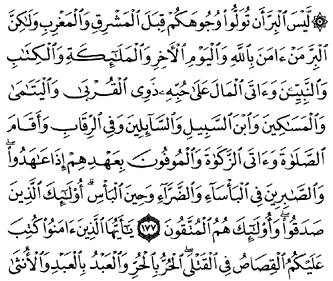 ۞ لَّيْسَ ٱلْبِرَّ أَن تُوَلُّوا۟ وُجُوهَكُمْ قِبَلَ ٱلْمَشْرِقِ وَٱلْمَغْرِبِ وَلَٰكِنَّ
ٱلْبِرَّ مَنْ ءَامَنَ بِٱللَّهِ وَٱلْيَوْمِ ٱلْءَاخِرِ وَٱلْمَلَٰٓئِكَةِ وَٱلْكِتَٰبِ
وَٱلنَّبِيِّـۧنَ وَءَاتَى ٱلْمَالَ عَلَىٰ حُبِّهِۦ ذَوِى ٱلْقُرْبَىٰ وَٱلْيَتَٰمَىٰ
وَٱلْمَسَٰكِينَ وَٱبْنَ ٱلسَّبِيلِ وَٱلسَّآئِلِينَ وَفِى ٱلرِّقَابِ وَأَقَامَ
ٱلصَّلَوٰةَ وَءَاتَى ٱلزَّكَوٰةَ وَٱلْمُوفُونَ بِعَهْدِهِمْ إِذَا عَٰهَدُوا۟ ۖ
وَٱلصَّٰبِرِينَ فِى ٱلْبَأْسَآءِ وَٱلضَّرَّآءِ وَحِينَ ٱلْبَأْسِ ۗ أُو۟لَٰٓئِكَ ٱلَّذِينَ
صَدَقُوا۟ ۖ وَأُو۟لَٰٓئِكَ هُمُ ٱلْمُتَّقُونَ ١٧٧ يَٰٓأَيُّهَا ٱلَّذِينَ ءَامَنُوا۟ كُتِبَ
عَلَيْكُمُ ٱلْقِصَاصُ فِى ٱلْقَتْلَى ۖ ٱلْحُرُّ بِٱلْحُرِّ وَٱلْعَبْدُ بِٱلْعَبْدِ وَٱلْأُنثَىٰ